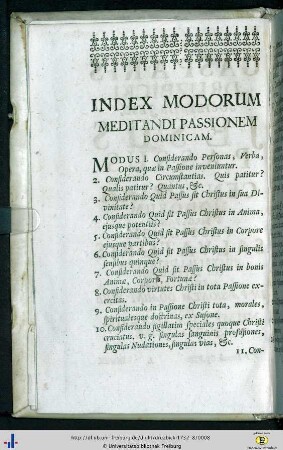 INDEX MODORUM
MEDITANDI PASSIONEM
DOMINICAM.
MODUS 1. Considerando Personas, Verba,
Opera, quæ in Passione inveniuntur.
2. Considerando Circumstantias. Quis patitur?
Qualis patitur? Quantus, &c.
3. Considerando Quid Passus sit Christus in sua Di-
vinitate?
4. Considerando Quid sit Passus Christus in Anima,
ejusque potentiis?
5. Considerando Quid sit Passus Christus in Corpore
ejusque partibus?
6. Considerando Quid sit Passus Christus in singulis
sensibus quinque?
7. Considerando Quid sit Passus Christus in bonis
Animæ, Corporis, Fortunæ?
8. Considerando virtutes Christi in tota Passione ex-
ercitas.
9. Considerando in Passione Christi tota, morales,
spiritualesque doctrinas, ex
10. Considerando sigillatim speciales quosque Christi
cruciatus, v. g. singulas sanguinis profusiones,
singulas Nudationes, singulas vias, &c.
11. Con-
© Universitätsbibliothek Freiburg